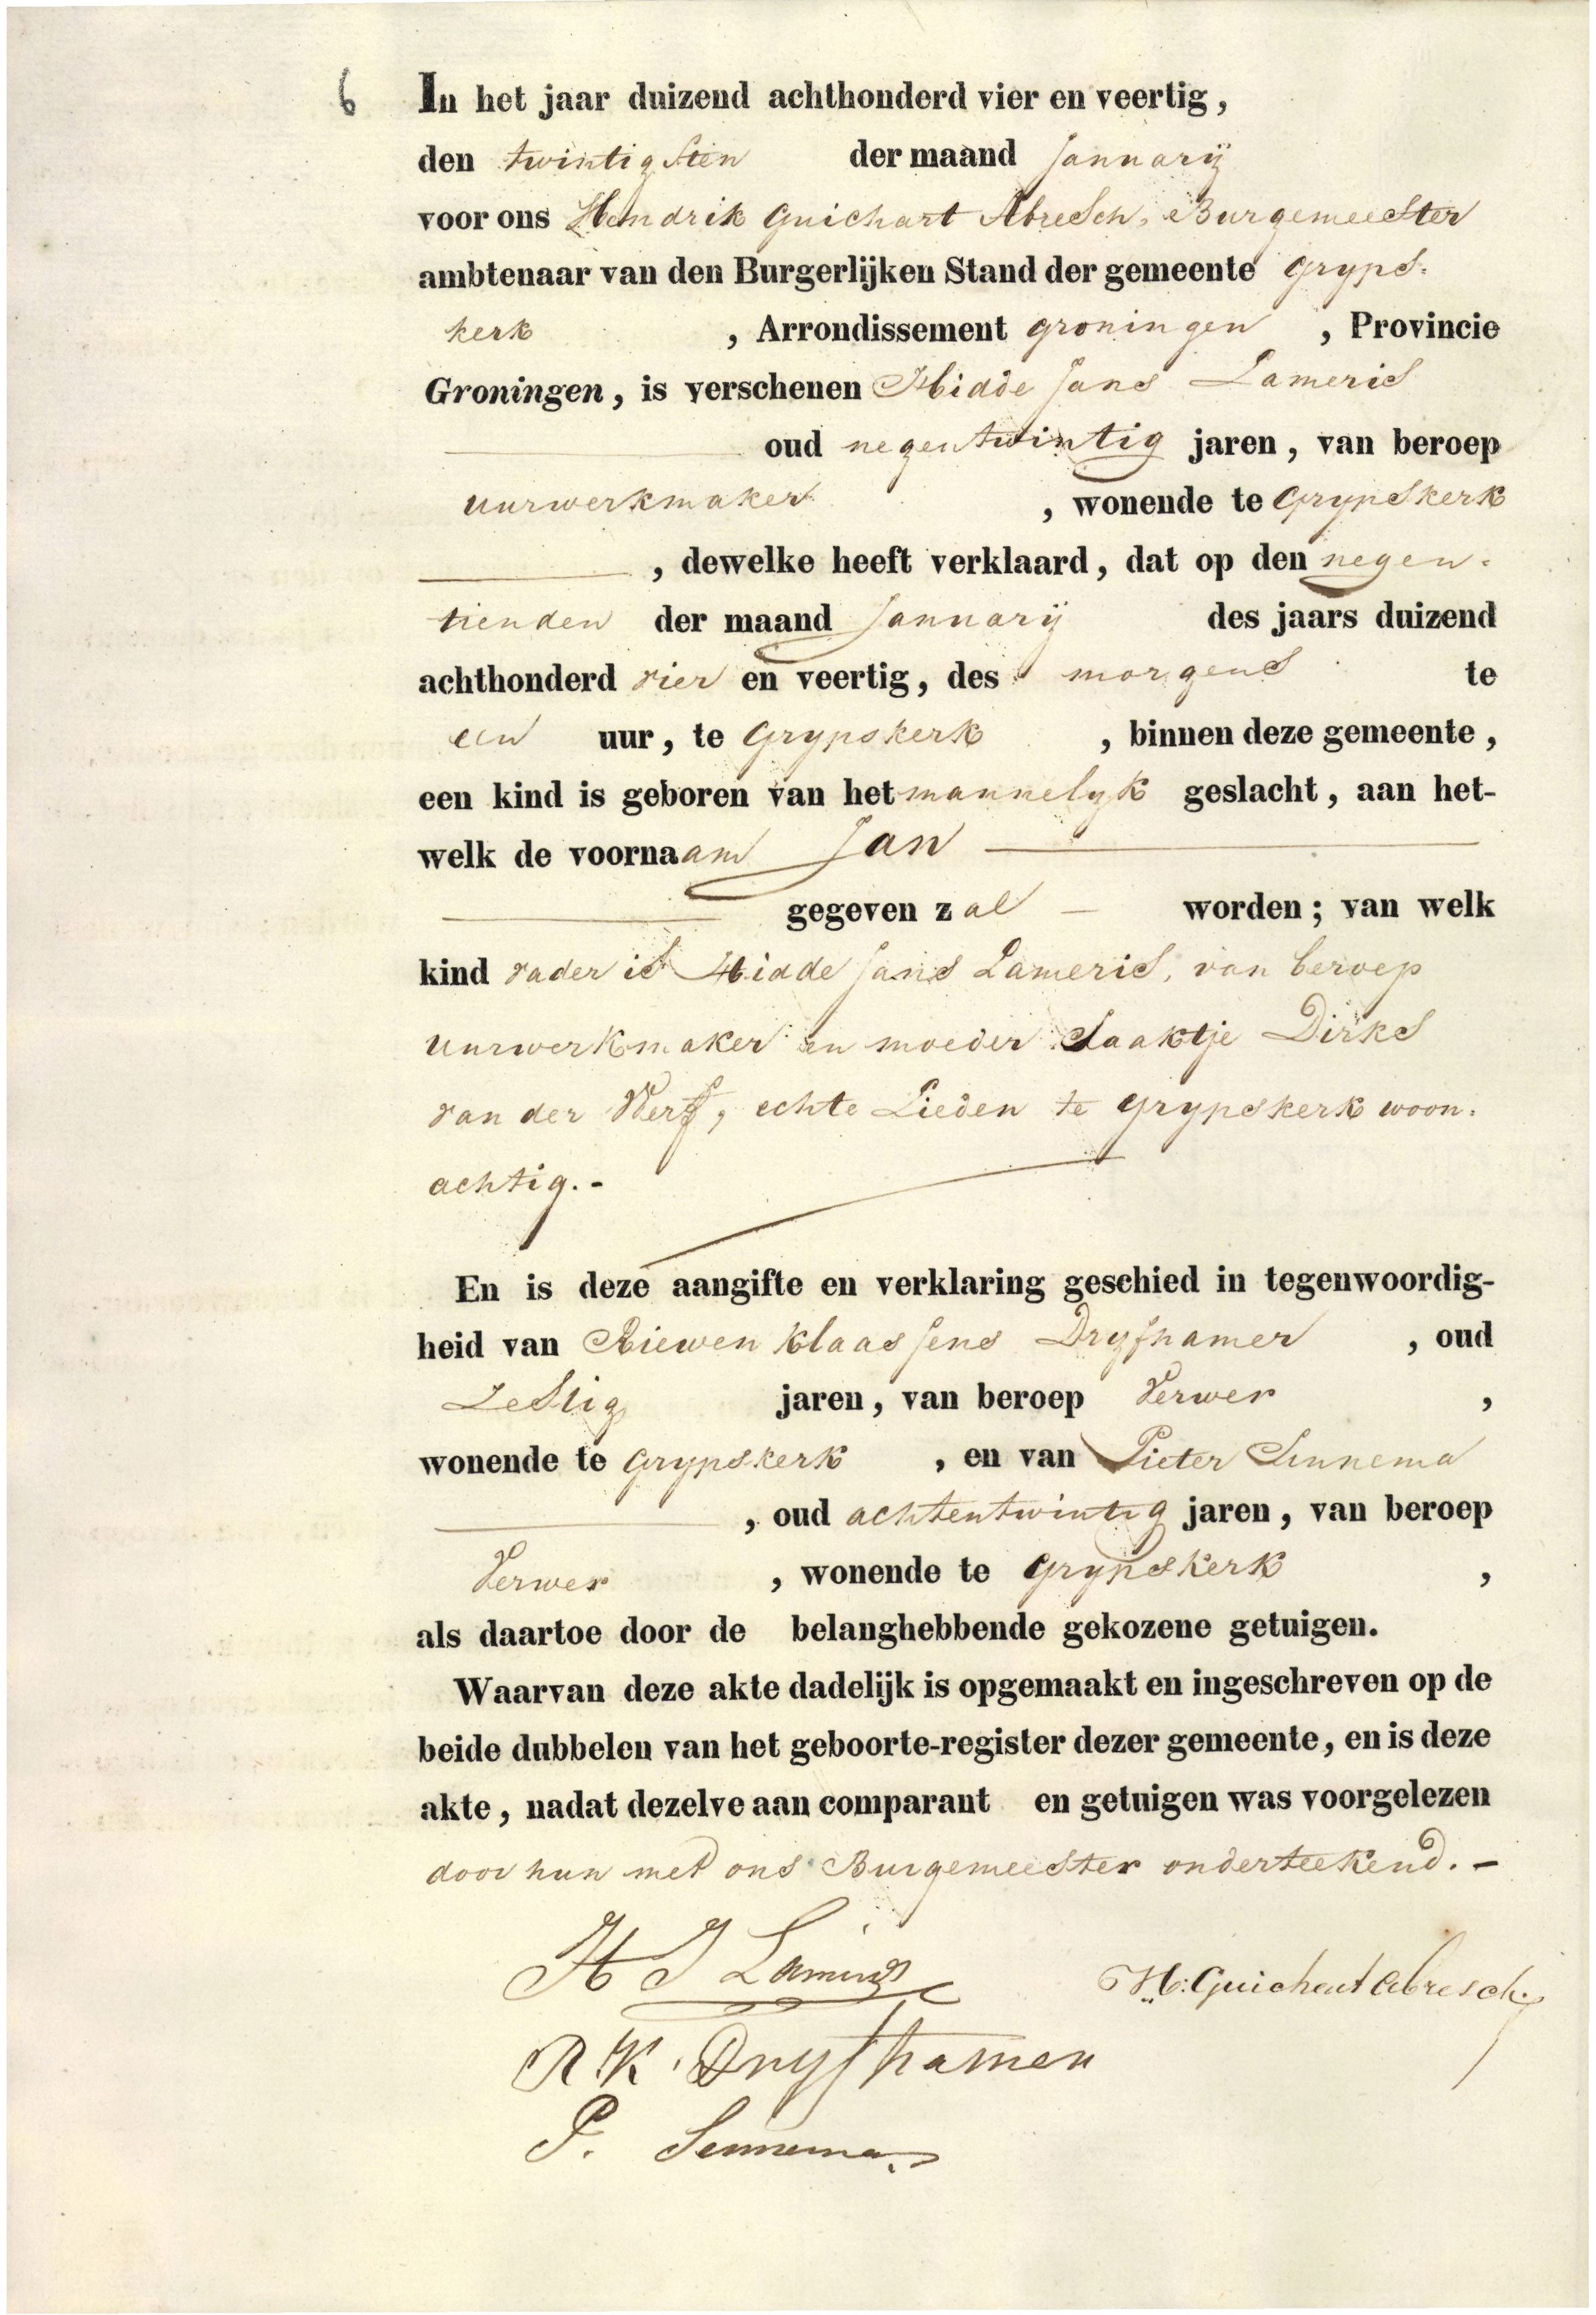 6 In het jaar duizend achthonderd vier en veertig,
den twintigsten der maand Januarij
voor ons Hendrik Guichart Abresch, Burgemeester
ambtenaar van den Burgerlijken Stand der gemeente Gryps-
kerk , Arrondissement Groningen , Provincie
Groningen, is verschenen Hidde Jans Lameris
oud negentwintig jaren, van beroep
uurwerkmaker , wonende te Grypskerk
, dewelke heeft verklaard, dat op den negen-
tienden der maand Januarij des jaars duizend
achthonderd vier en veertig, des morgens te
een uur, te Grypskerk , binnen deze gemeente,
een kind is geboren van het mannelyk geslacht, aan het-
welk de voornaam Jan
gegeven zal worden; van welk
kind vader is Hidde Jans Lameris, van beroep
uurwerkmaker en moeder Saaktje Dirks
van der Werf, echte Lieden te Grypskerk woon-
achtig.-
En is deze aangifte en verklaring geschied in tegenwoordig-
heid van Riewen Klaassens Dryfhamer , oud
Zestig jaren, van beroep Verwer ,
wonende te Grypskerk , en van Pieter Sennema
, oud achtentwintig jaren, van beroep
Verwer , wonende te Grypskerk ,
als daartoe door de belanghebbende gekozene getuigen.
Waarvan deze akte dadelijk is opgemaakt en ingeschreven op de
beide dubbelen van het geboorte-register dezer gemeente, en is deze
akte, nadat dezelve aan comparant en getuigen was voorgelezen
door hun met ons Burgemeester onderteekend.-
H J Lameris
H: Guichart Abresch.
R.K. Dryfhamer
P. Sennema